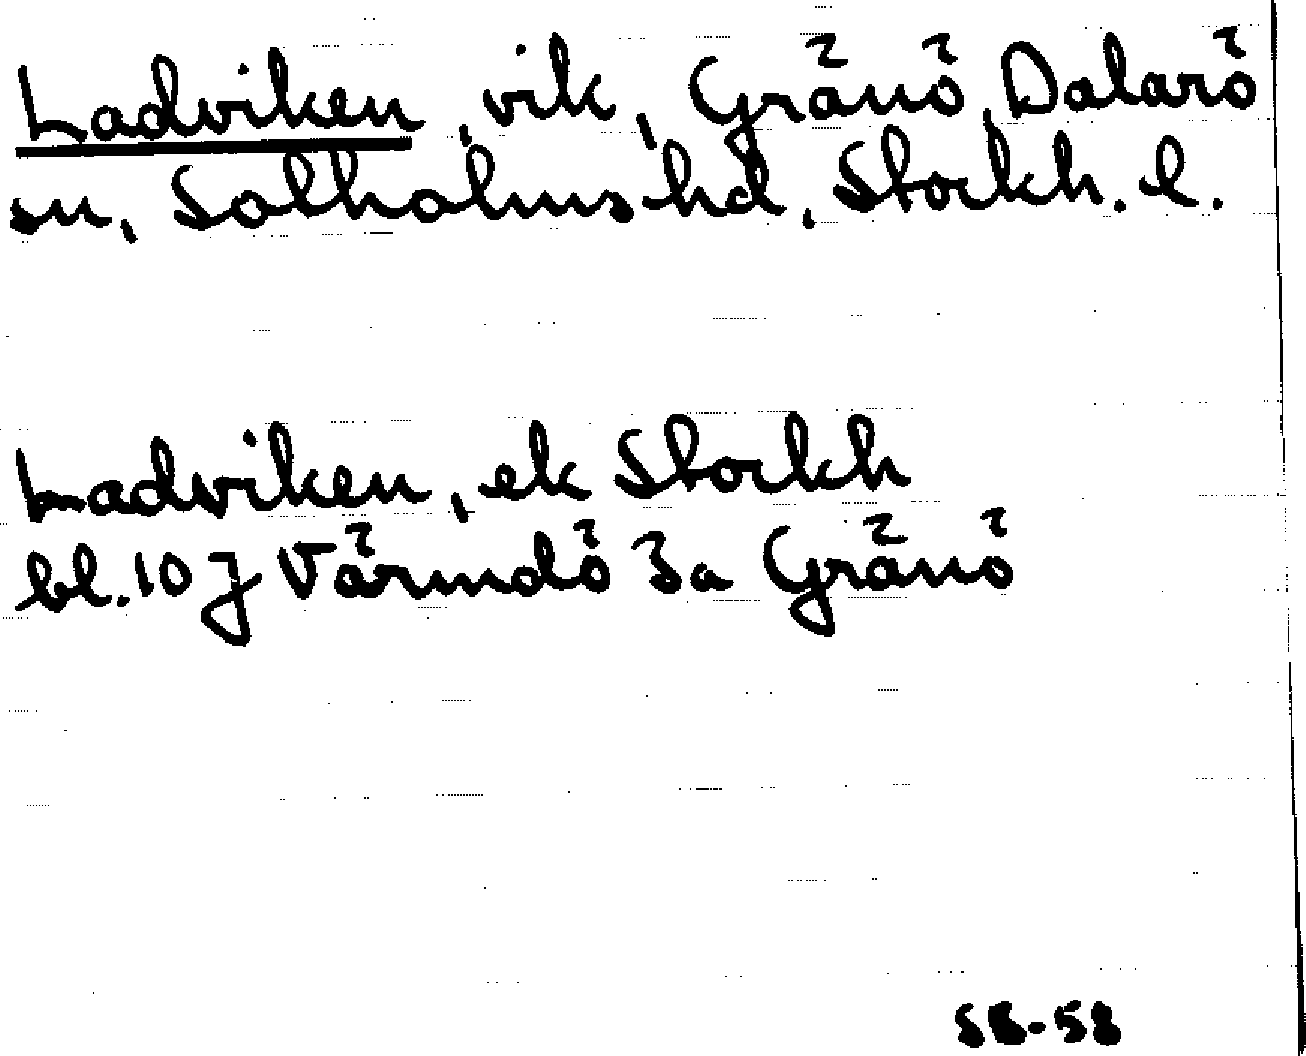 Ladviken, vik, Gränö, Dalarö
sn, Sotholms hd, Stockh. l.
Ladviken, ek Stockh
bl. 107 Värmdö 3a Gränö
SB-58